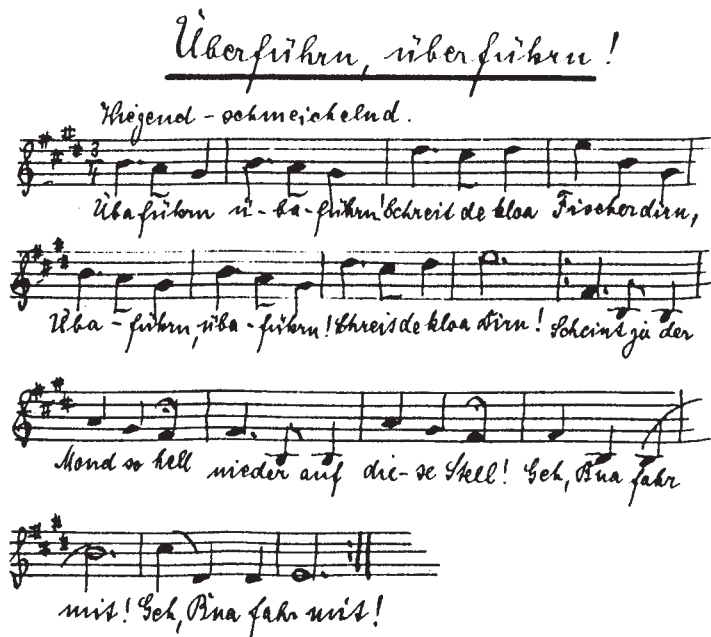 Überführn, überführn!
Wiegend - schmeichelnd.
3/4
Übaführn ü-ba-führn! Schreit de kloa Fischerdirn,
Üba-führn, üba-führn! Schreit de kloa Dirn! Scheint zu der
Mond so hell nieder auf die-se Stell! Geh, Bua fahr
mit! Geh, Bua fahr mit!